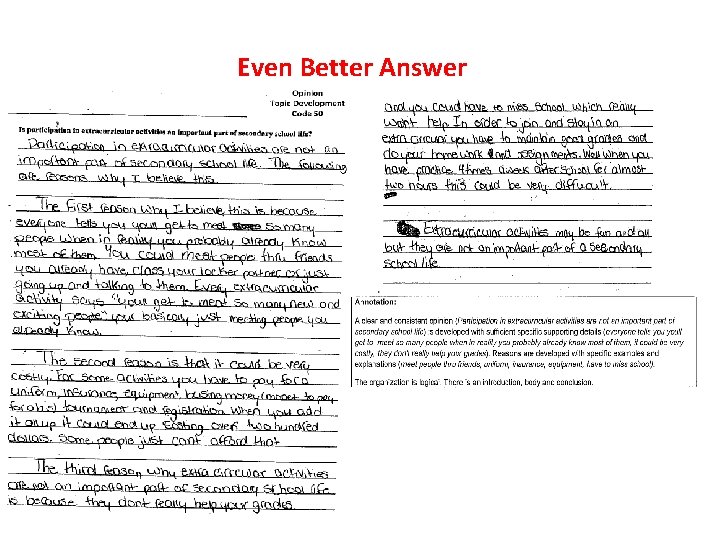 Even Better Answer
Opinion
Topic Development
Code 50
Is participation in extracurricular activities an important part of secondary school life?
Participation in extracurricular activities are not an
important part of secondary school life. The following
are reasons why I believe this.
The first reason why I believe this is because
everyone tells you your get to meet so many
people when in reality you probably already know
most of them. You could meet people thru friends
you already have, class your locker partner or just
going up and talking to them. Every extracurricular
activity says "your get to meet so many new and
exciting people" your basicaly just meeting people you
already know.
The second reason is that it could be very
costly. For some activities you have to pay for a
uniform, insurance, equipment, busing money (money to pay
for a bus) tournament and registration when you add
it all up it could end up costing over two hundred
dollars. Some people just can't afford that
The third reason why extra circular activities
are not an important part of secondary school life
is because they don't really help your grades.
and you could have to miss school which really
won't help. In order to join and stay in an
extra circular you have to maintain good grades and
do your homework and assignments. Well when you
have practice 4 times a week after school for almost
two hours this could be very difficult.
Extracurricular activities may be fun and all
but they are not an important part of a secondary
school life.
Annotation:
A clear and consistent opinion (Participation in extracurricular activities are not an important part of
secondary school life) is developed with sufficient specific supporting details (everyone tells you youll
get to meet so many people when in reality you probably already know most of them, it could be very
costly, they don't really help your grades). Reasons are developed with specific examples and
explanations (meet people thru friends, uniform, insurance, equipment, have to miss school).
The organization is logical. There is an introduction, body and conclusion.